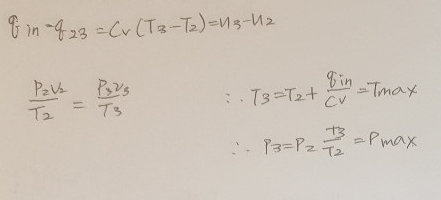 q in = q23 = Cv (T3-T2) = u3-u2
P2V2/T2 = P3V3/T3
∴ T3 = T2 + qin/Cv = Tmax
∴ P3 = P2 T3/T2 = Pmax